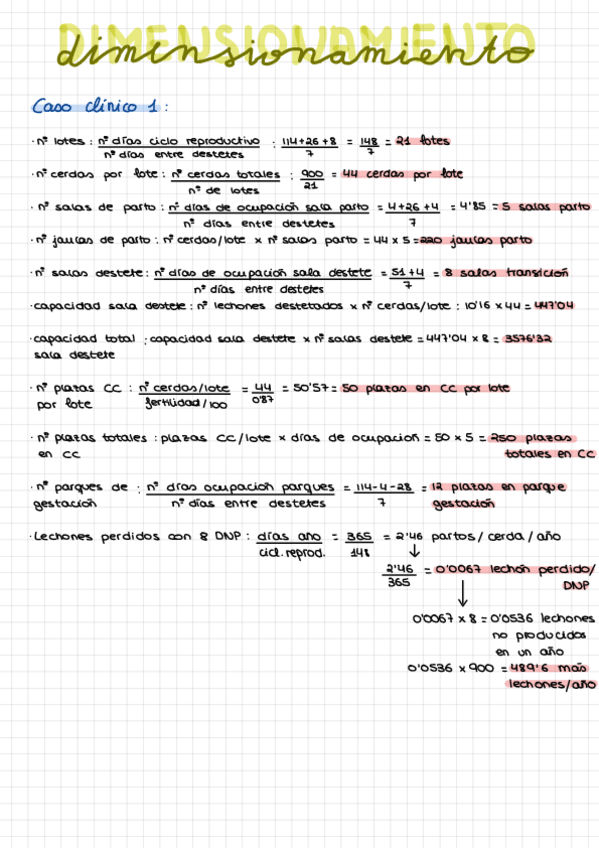 DIMENSIONAMIENTO
dimensionamiento
Caso clínico 1:
· nº lotes : nº días ciclo reproductivo / nº días entre destetes : 114+26+8 / 7 = 148 / 7 = 21 lotes
· nº cerdas por lote : nº cerdas totales / nº de lotes : 900 / 21 = 44 cerdas por lote
· nº salas de parto : nº días de ocupación sala parto / nº días entre destetes = 4+26+4 / 7 = 4'85 = 5 salas parto
· nº jaulas de parto : nº cerdas/lote x nº salas parto = 44 x 5 = 220 jaulas parto
· nº salas destete : nº días de ocupación sala destete / nº días entre destetes = 51+4 / 7 = 8 salas transición
· capacidad sala destete : nº lechones destetados x nº cerdas/lote : 10'16 x 44 = 447'04
· capacidad total : capacidad sala destete x nº salas destete = 447'04 x 8 = 3576'32
sala destete
· nº plazas CC : nº cerdas/lote / fertilidad/100 = 44 / 0'87 = 50'57 = 50 plazas en CC por lote
por lote
· nº plazas totales : plazas CC/lote x días de ocupación = 50 x 5 = 250 plazas
en CC totales en CC
· nº parques de : nº días ocupación parques / nº días entre destetes = 114-4-28 / 7 = 12 plazas en parque
gestación gestación
· Lechones perdidos con 8 DNP : días año / cicl. reprod. = 365 / 148 = 2'46 partos / cerda / año
2'46 / 365 = 0'0067 lechón perdido/
DNP
0'0067 x 8 = 0'0536 lechones
no producidos
en un año
0'0536 x 900 = 489'6 más
lechones/año